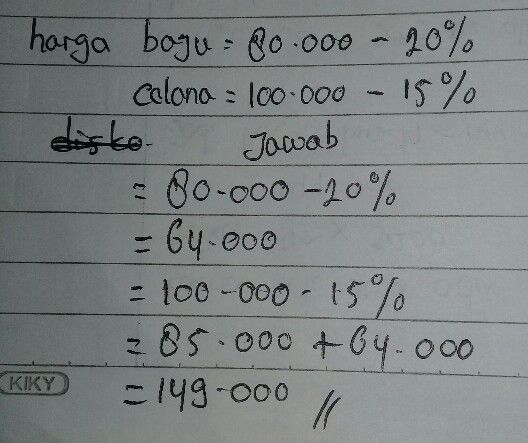 harga bagu = 80.000 - 20%
Celana = 100.000 - 15%
disko. Jawab
= 80.000 - 20%
= 64.000
= 100.000 - 15%
= 85.000 + 64.000
KIKY = 149.000 //